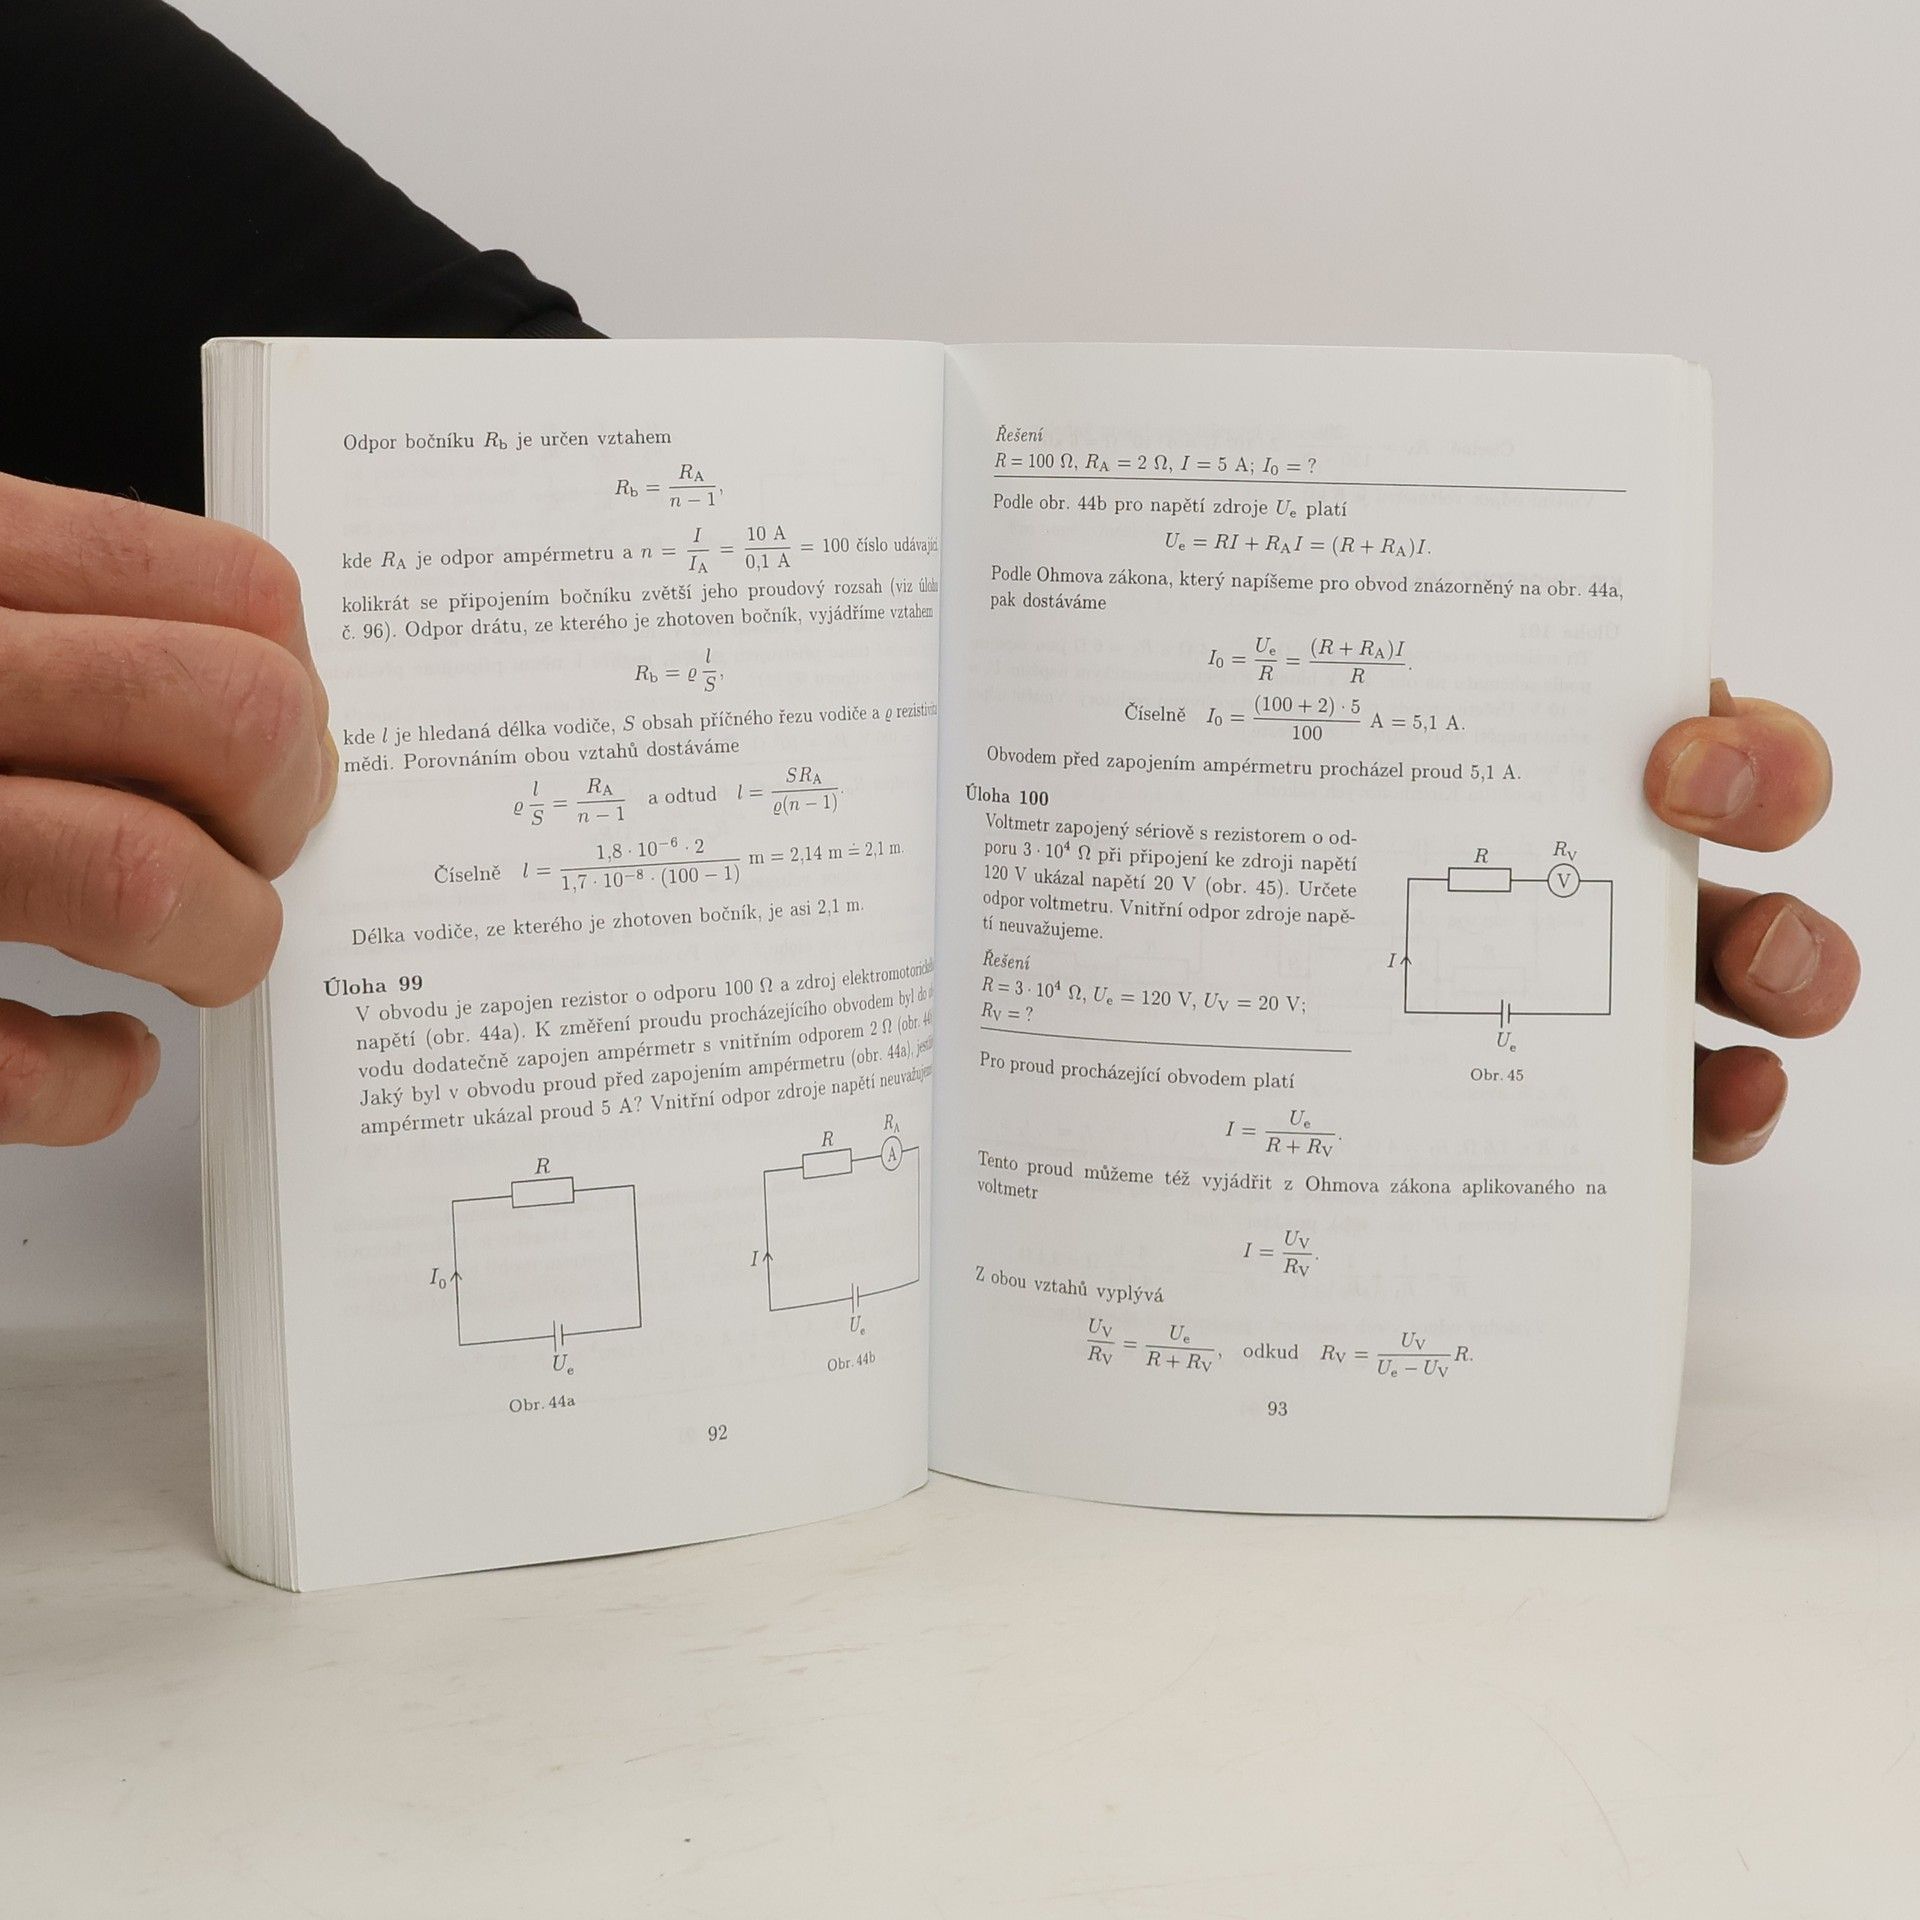 Odpor bočníku R_b je určen vztahem
R_b = R_A / (n − 1),
kde R_A je odpor ampérmetru a n = I / I_A = 10 A / 0,1 A = 100 číslo
kolikrát se připojením bočníku zvětší jeho proudový rozsah (viz
č. 96). Odpor drátu, ze kterého je zhotoven bočník, vyjádříme vztahem
R_b = ϱ l / S,
kde l je hledaná délka vodiče, S obsah příčného řezu vodiče a ϱ
mědi. Porovnáním obou vztahů dostáváme
ϱ l / S = R_A / (n − 1) a odtud l = SR_A / ϱ(n − 1).
Číselně l = 1,8 · 10⁻⁶ · 2 / 1,7 · 10⁻⁸ · (100 − 1) m = 2,14 m ≐ 2,1 m.
Délka vodiče, ze kterého je zhotoven bočník, je asi 2,1 m.
Úloha 99
V obvodu je zapojen rezistor o odporu 100 Ω a zdroj
napětí (obr. 44a). K změření proudu procházejícího obvodem byl do
vodu dodatečně zapojen ampérmetr s vnitřním odporem 2 Ω (obr.
Jaký byl v obvodu proud před zapojením ampérmetru (obr. 44a),
ampérmetr ukázal proud 5 A? Vnitřní odpor zdroje napětí
R
I₀
U_e
Obr. 44a
R
R_A
A
I
U_e
Obr. 44b
92
Řešení
R = 100 Ω, R_A = 2 Ω, I = 5 A; I₀ = ?
Podle obr. 44b pro napětí zdroje U_e platí
U_e = RI + R_A I = (R + R_A)I.
Podle Ohmova zákona, který napíšeme pro obvod znázorněný na obr. 44a,
pak dostáváme
I₀ = U_e / R = (R + R_A)I / R.
Číselně I₀ = (100 + 2) · 5 / 100 A = 5,1 A.
Obvodem před zapojením ampérmetru procházel proud 5,1 A.
Úloha 100
Voltmetr zapojený sériově s rezistorem o od-
poru 3 · 10⁴ Ω při připojení ke zdroji napětí
120 V ukázal napětí 20 V (obr. 45). Určete
odpor voltmetru. Vnitřní odpor zdroje napě-
tí neuvažujeme.
Řešení
R = 3 · 10⁴ Ω, U_e = 120 V, U_V = 20 V;
R_V = ?
R
R_V
V
I
U_e
Obr. 45
Pro proud procházející obvodem platí
I = U_e / (R + R_V).
Tento proud můžeme též vyjádřit z Ohmova zákona aplikovaného na
voltmetr
I = U_V / R_V.
Z obou vztahů vyplývá
U_V / R_V = U_e / (R + R_V), odkud R_V = U_V / (U_e − U_V) R.
93